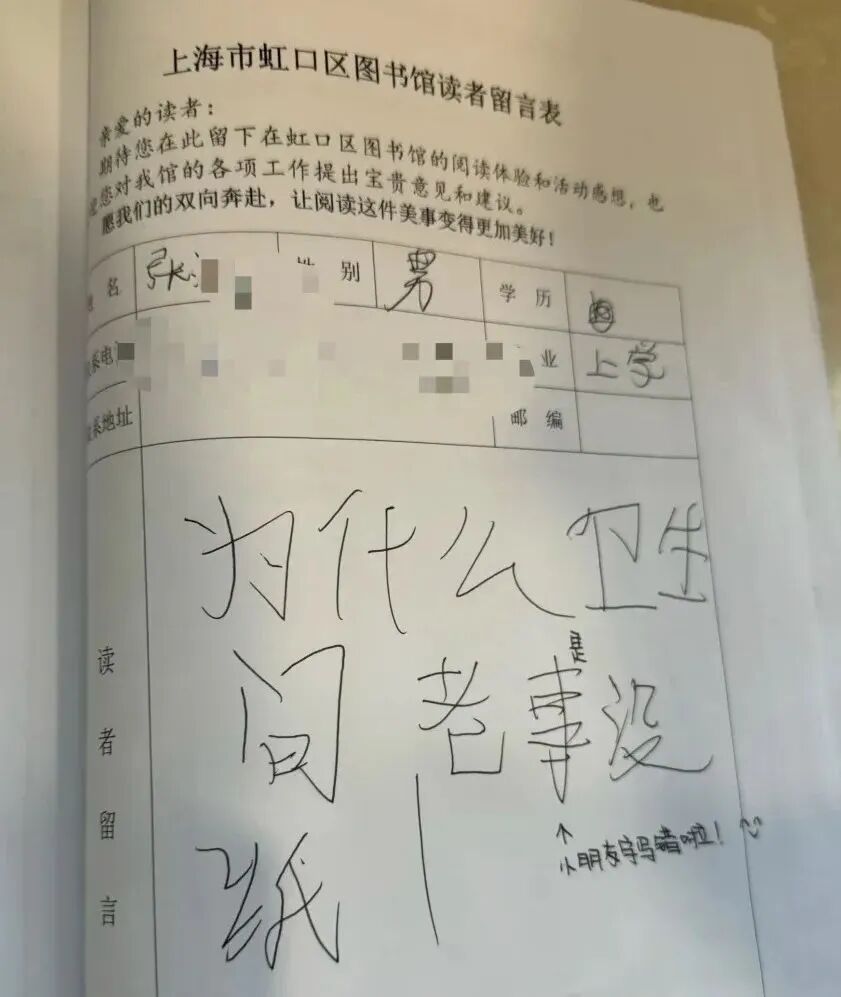 上海市虹口区图书馆读者留言表
亲爱的读者：
期待您在此留下在虹口区图书馆的阅读体验和活动感想，也
您对我馆的各项工作提出宝贵意见和建议。
愿我们的双向奔赴，让阅读这件美事变得更加美好！
名 张 性 别 男 学 历
系电 业 上学
系地址 邮 编
为什么卫生
间老事没
是
纸
↑
小朋友字写错啦！
读者留言